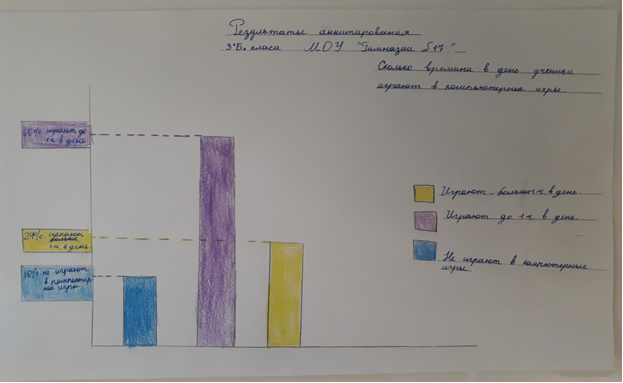 Результаты анкитирования
3"Б" класа МОУ "Гимназии №17"
Сколько времини в день ученики
играют в компьютерные игры.
60% играют до
1 ч. в день
24% играют
больше
1 ч. в день
16% не играют
в компьютер
ные игры
Играют в день.
Играют до 1 ч. в день.
Не играют в компютерные
игры.